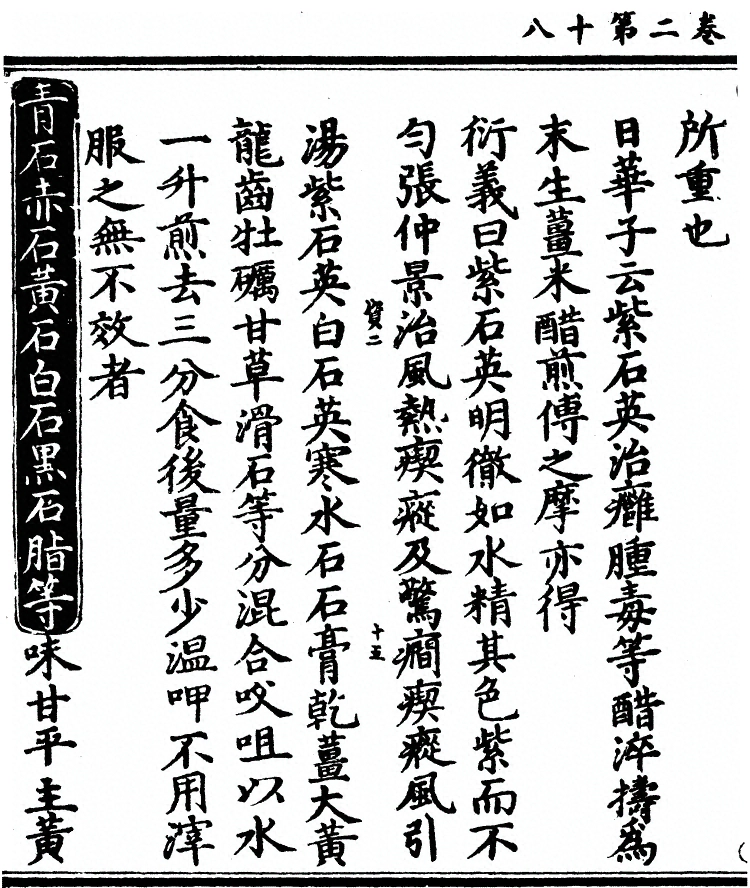 卷二第十八
所重也
日華子云紫石英治癰腫毒等醋淬擣為
末生薑米醋煎傅之摩亦得
衍義曰紫石英明徹如水精其色紫而不
勻張仲景治風熱瘈瘲及驚癇瘈瘲風引
湯紫石英白石英寒水石石膏乾薑大黃
龍齒牡礪甘草滑石等分混合㕮咀以水
一升煎去三分食後量多少温呷不用滓
服之無不效者
青石赤石黃石白石黑石脂等味甘平主黃
資二
十五